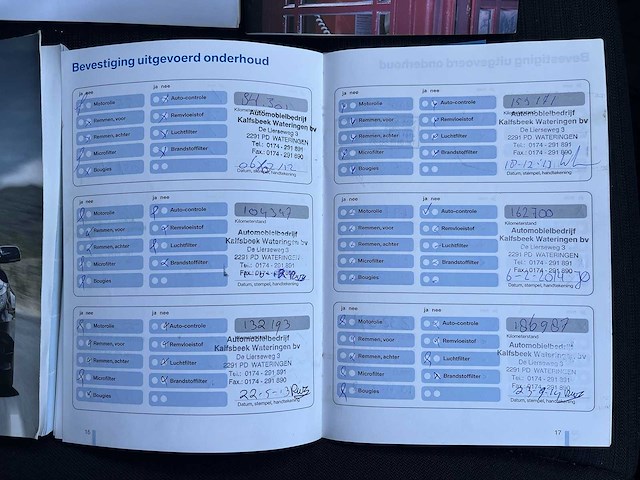 Bevestiging uitgevoerd onderhoud
ja nee
ja nee
Motorolie
Auto-controle
Remmen, voor
Remvloeistof
Remmen, achter
Luchtfilter
Microfilter
Brandstoffilter
Bougies
84.301
Kilometerstand
Automobielbedrijf
Kalfsbeek Wateringen bv
De Lierseweg 3
2291 PD WATERINGEN
Tel.: 0174 - 291 891
Fax.: 0174 - 291 890
Datum, stempel, handtekening
ja nee
ja nee
Motorolie
Auto-controle
Remmen, voor
Remvloeistof
Remmen, achter
Luchtfilter
Microfilter
Brandstoffilter
Bougies
104347
Kilometerstand
Automobielbedrijf
Kalfsbeek Wateringen bv
De Lierseweg 3
2291 PD WATERINGEN
Tel.: 0174 - 291 891
Datum, stempel, handtekening
ja nee
ja nee
Motorolie
Auto-controle
Remmen, voor
Remvloeistof
Remmen, achter
Luchtfilter
Microfilter
Brandstoffilter
Bougies
132193
Kilometerstand
Automobielbedrijf
Kalfsbeek Wateringen bv
De Lierseweg 3
2291 PD WATERINGEN
Tel.: 0174 - 291 891
Fax.: 0174 - 291 890
22-5-13
Datum, stempel, handtekening
16
ja nee
ja nee
Motorolie
Auto-controle
Remmen, voor
Remvloeistof
Remmen, achter
Luchtfilter
Microfilter
Brandstoffilter
Bougies
Automobielbedrijf
Kalfsbeek Wateringen bv
De Lierseweg 3
2291 PD WATERINGEN
Tel.: 0174 - 291 891
Fax.: 0174 - 291 890
18-12-13
Datum, stempel, handtekening
ja nee
ja nee
Motorolie
Auto-controle
Remmen, voor
Remvloeistof
Remmen, achter
Luchtfilter
Microfilter
Brandstoffilter
Bougies
162700
Kilometerstand
Automobielbedrijf
Kalfsbeek Wateringen bv
De Lierseweg 3
2291 PD WATERINGEN
Tel.: 0174 - 291 891
Fax.: 0174 - 291 890
6-2-2014
Datum, stempel, handtekening
ja nee
ja nee
Motorolie
Auto-controle
Remmen, voor
Remvloeistof
Remmen, achter
Luchtfilter
Microfilter
Brandstoffilter
Bougies
186987
Kilometerstand
Automobielbedrijf
Kalfsbeek Wateringen bv
De Lierseweg 3
2291 PD WATERINGEN
Tel.: 0174 - 291 891
Fax.: 0174 - 291 890
Datum, stempel, handtekening
17